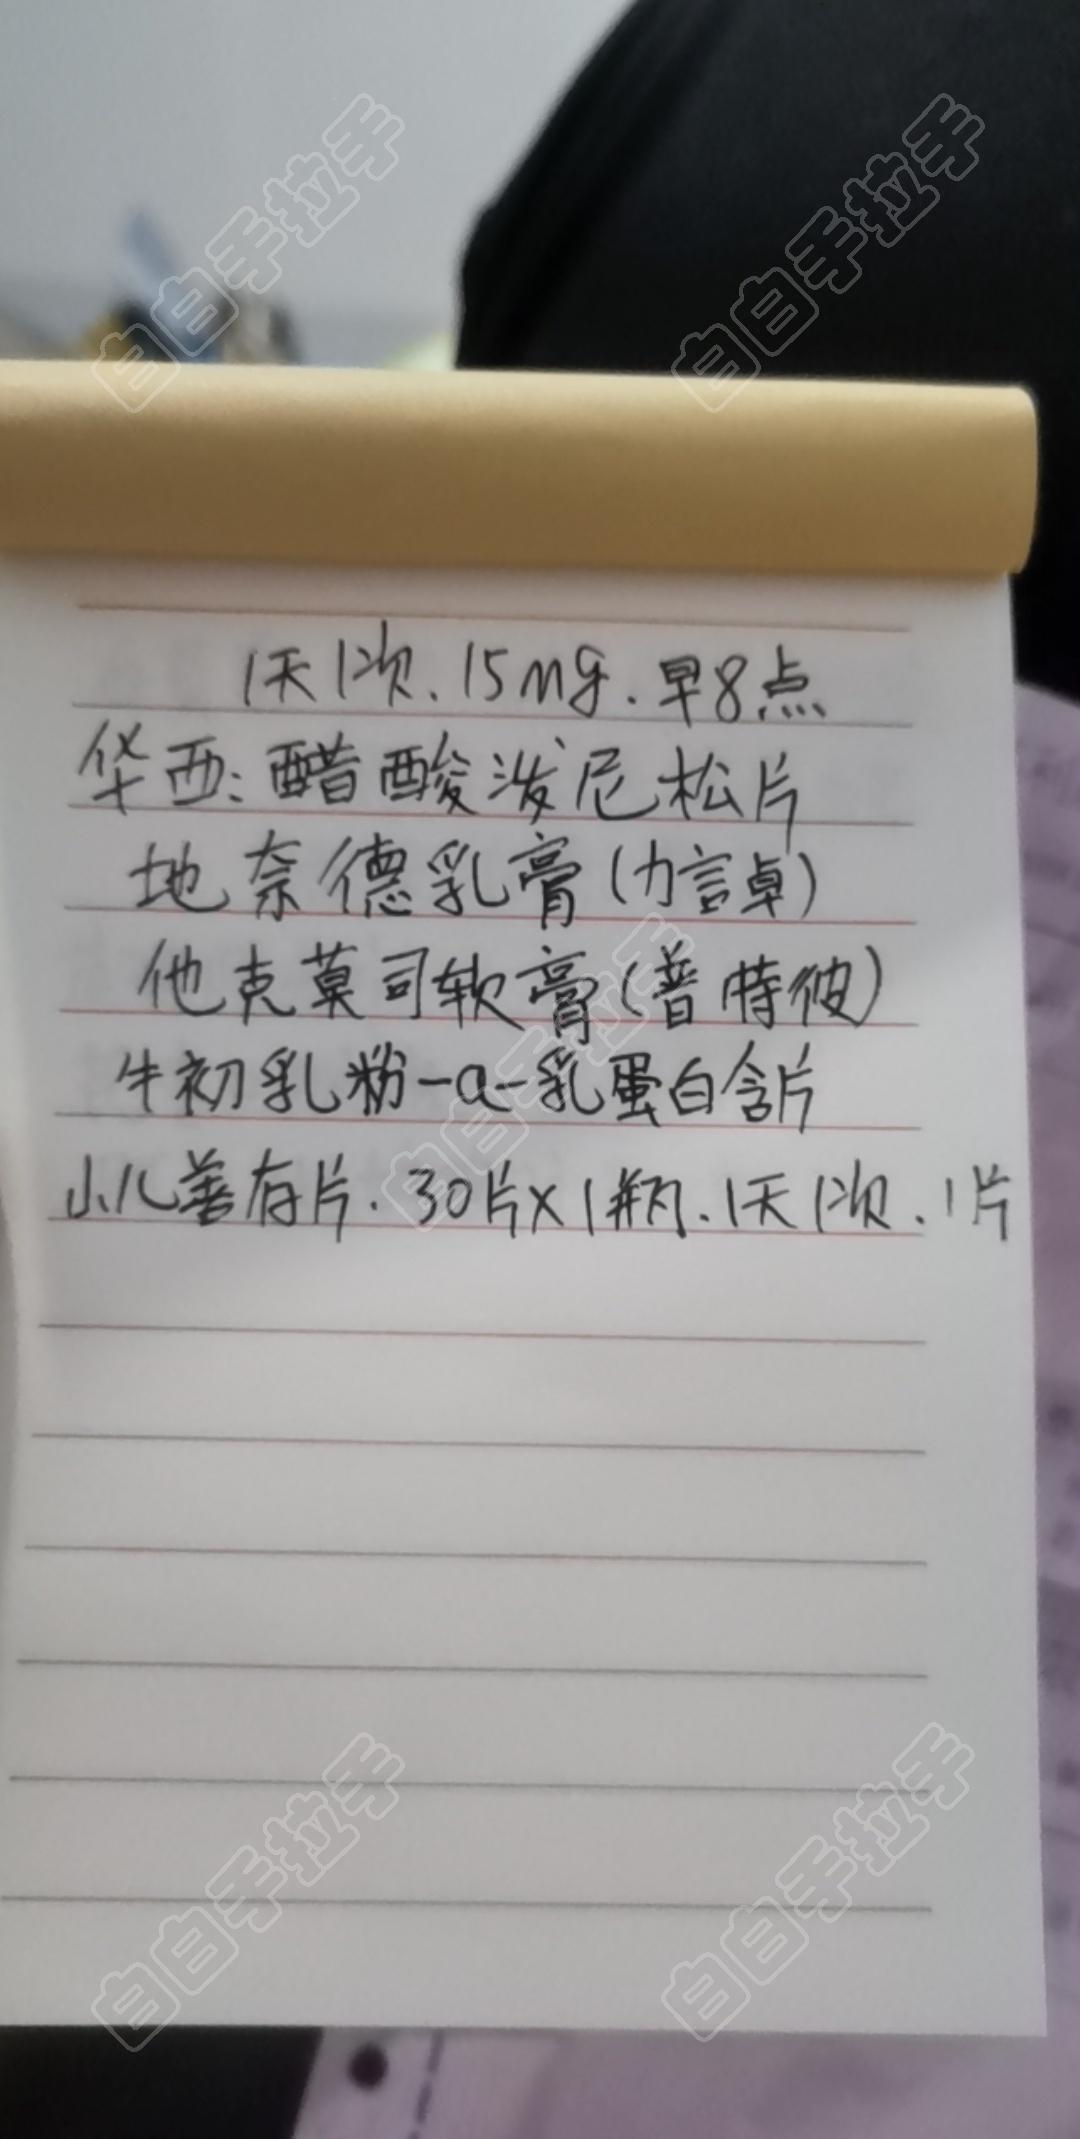 1天1次.15mg.早8点
华西:醋酸泼尼松片
地奈德乳膏(力言卓)
他克莫司软膏(普特彼)
牛初乳粉-a-乳蛋白含片
小儿善存片.30片×1瓶.1天1次.1片
白白手拉手
白白手拉手
白白手拉手
白白手拉手
白白手拉手